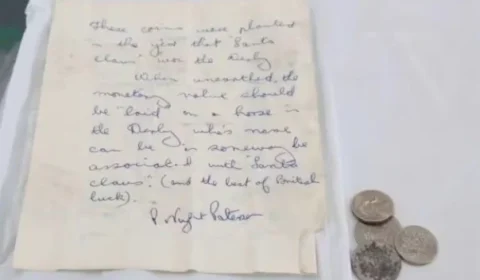 These coins were planted
in the year that "Santa
Claus" won the Derby
When unearthed, the
monetary value should
be "laid" on a horse in
the Derby who's name
can be in someway be
associated with "Santa
Claus". (and the best of British
luck).
P. Wright Paterson